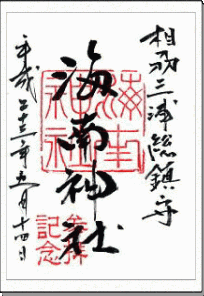 相州三浦総鎮守
海南神社
海南神社
参拝
記念
平成二十三年
月十四日